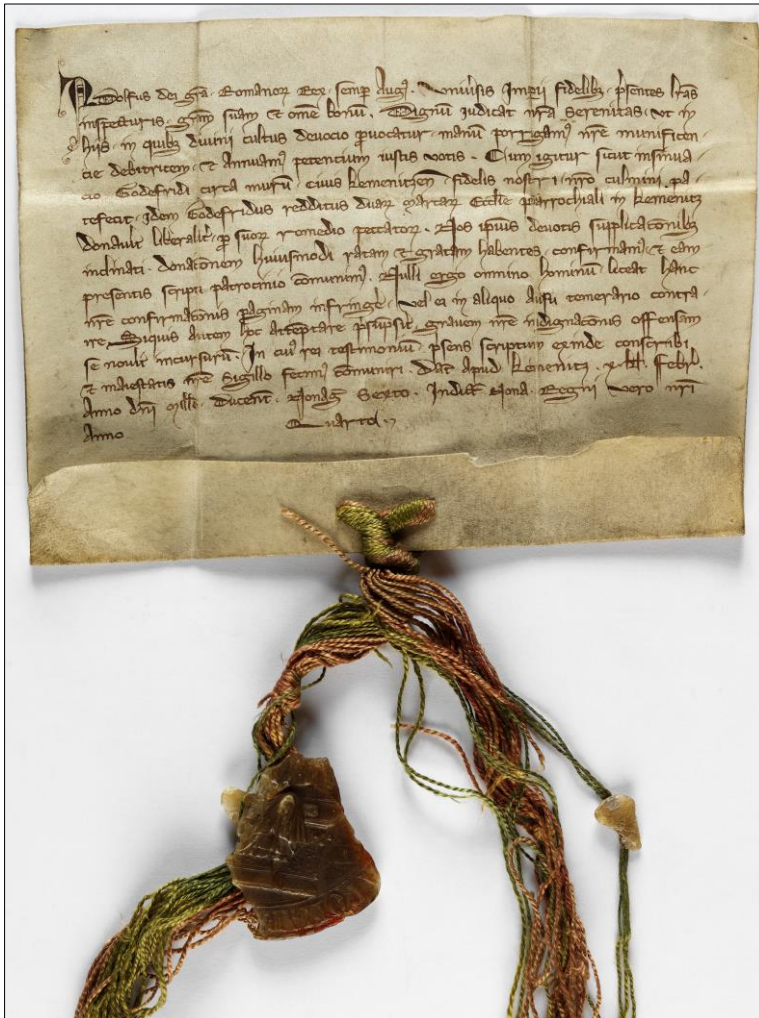 Adolfus dei gr̄a. Romanoꝝ Rex. semꝑ Aug⁹. Vniu̓sis Imꝑii fidelibꝫ. p̄sentes lr̄as
inspecturis. gr̄am suam ⁊ om̄e bonū. Dignū iudicat nr̄a serenitas. vt in
hiis. in quibꝫ diuini cultus deuocio ꝓuocatur. manū porrigam⁹ nr̄e munificen-
cie debitricem. ⁊ Annuam⁹ petencium iustis votis. Cum igitur sicut insinua-
cio Godefridi circa murū. ciuis kemenitzen̄. fidelis nostri. nr̄o culmini pa-
tefecit. idem Godefridus redditus duaꝝ marcaꝝ Eccl̄ie parrochiali in kemenitz
donauit liberalit̓. ꝓ suoꝝ remedio peccatoꝝ. Nos ipius deuotis supplicac̄onibꝫ
inclinati. donac̄onem huiusmodi ratam ⁊ gratam habentes. confirmam⁹. ⁊ eam
presentis scripti patrocinio cōmunim⁹. Nulli ergo omnino hominū liceat hanc
nr̄e confirmac̄onis paginam infringe̓. vel ei in aliquo ausu temerario contra-
ire. Siquis autem hoc attēptare p̄sūpsit̓. grauem nr̄e indignac̄onis offensam
se nouit incursurū. In cui⁹ rei testimoniū. p̄sens scriptum exinde conscribi.
⁊ maiestatis nr̄e Sigillo fecim⁹ cōmuniri. Dat̄ apud kemenitz. x. kl̄. Febr̄.
Anno dn̄i Mill̄o. Ducent̄. Nonaḡ. Sexto. Indict̄. Nona. Regni vero nr̄i
Anno Quarto.